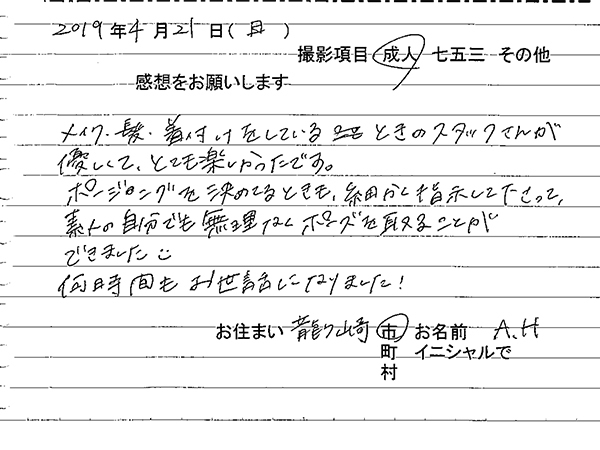 2019年4月21日(日)
撮影項目 成人 七五三 その他
感想をお願いします
メイク・髪・着付けをしている ときのスタッフさんが
優しくて、とても楽しかったです。
ポージングを決めてるときも、細かく指示して下さって、
素人の自分でも無理なくポーズを取ることが
できました☺
何時間もお世話になりました!
お住まい 龍ケ崎 市 お名前 A.H
町 イニシャルで
村